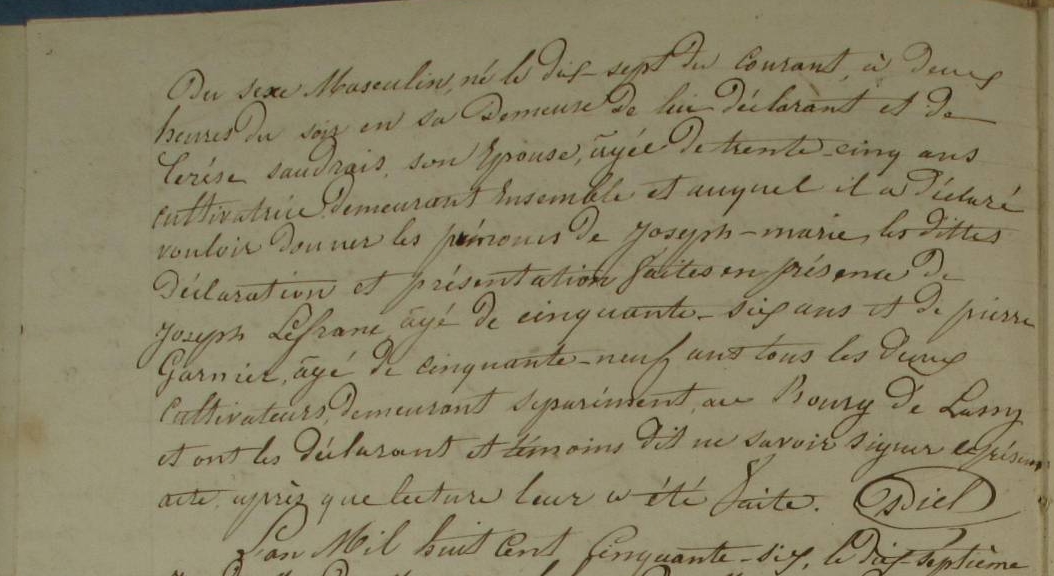 Du sexe Masculin, né le dix-sept du courant, à deux
heures du soir en sa Demeure de lui déclarant et de
Térése saudrais, son Epouse, âgée De trente-cinq ans
cultivatrice, demeurant Ensemble et auquel il a Déclaré
vouloir donner les prénoms de Joseph-marie, les dittes
Déclaration et présentation faites en présence de
Joseph Lefranc, âgé de cinquante-six ans et de pierre
Garnier, âgé de cinquante-neuf ans tous les deux
Cultivateurs, demeurant séparément, au Bourg de Lassy
et ont les déclarant et témoins dit ne savoir signer le présent
acte, après que lecture leur a été faite.
L'an Mil huit Cent Cinquante-six, le dix-septième